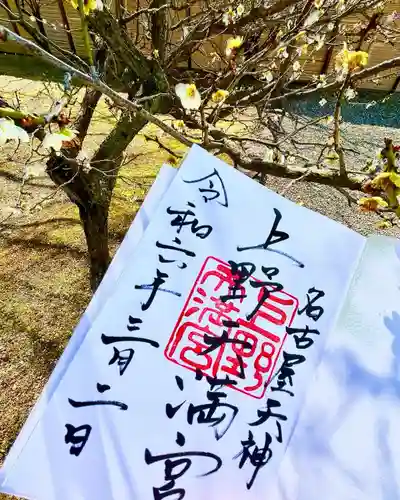 名古屋天神
上野天満宮
令和六年三月二日